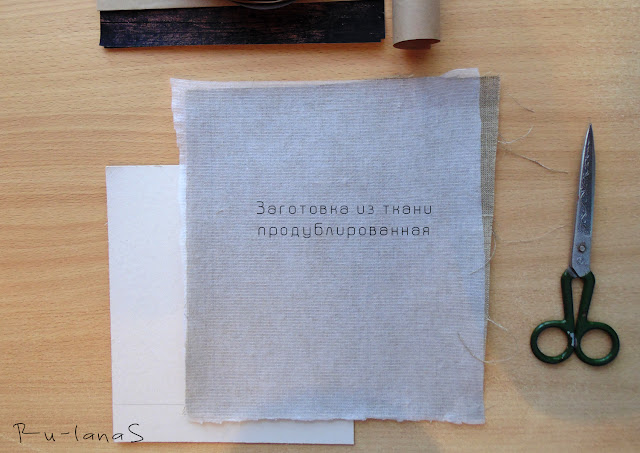 Заготовка из ткани
продублированная
Ru-lanaS